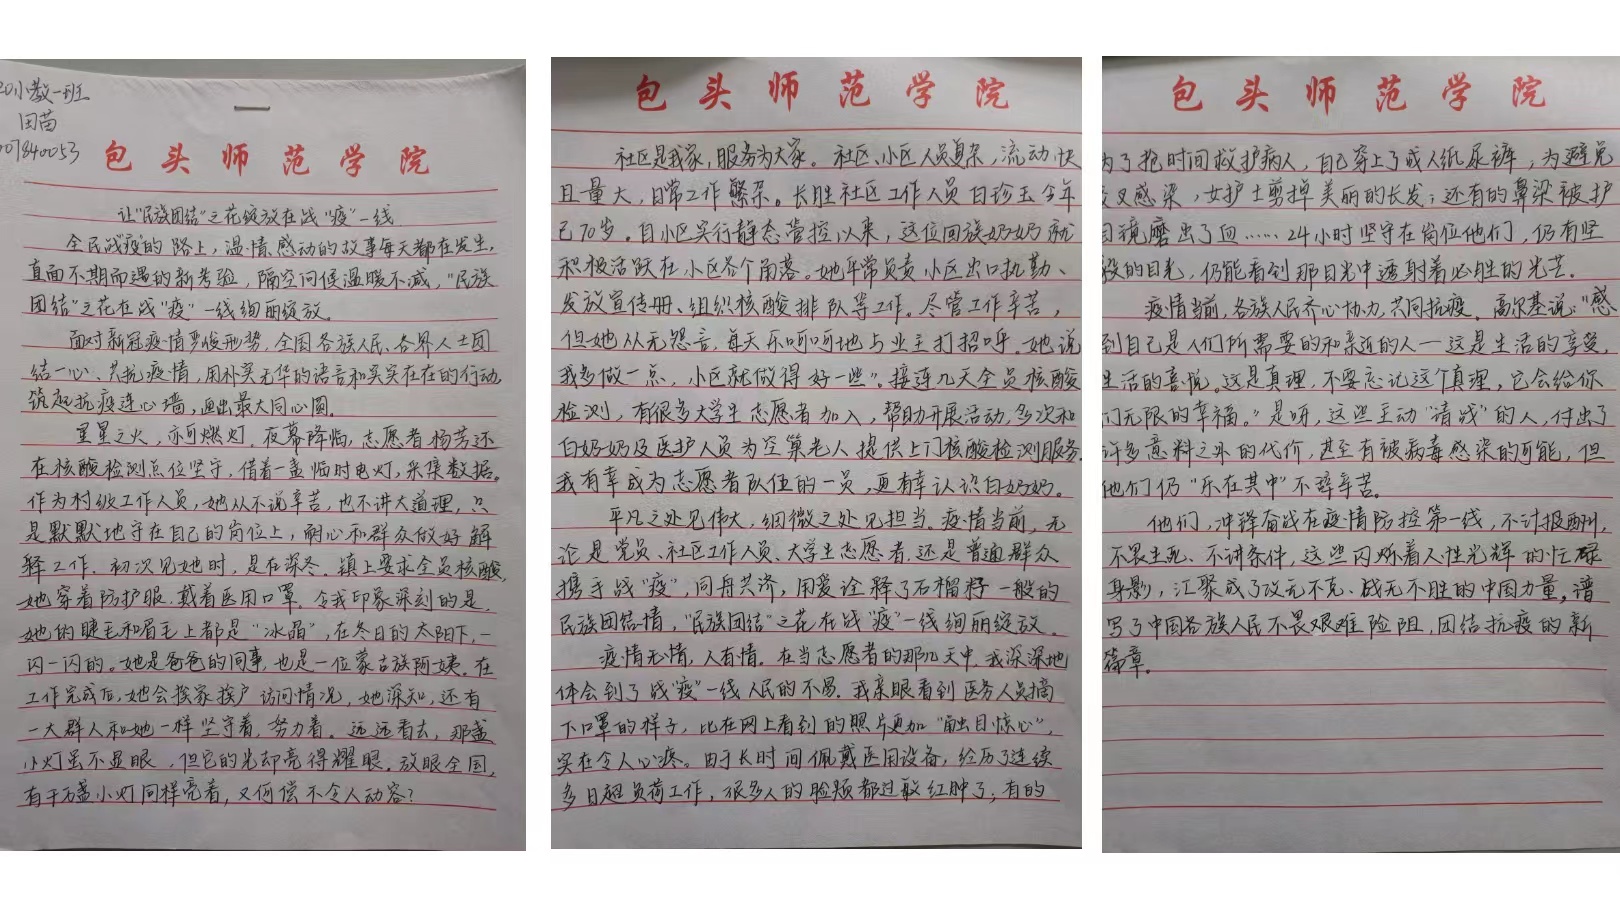 20小教一班
田苗
007840053
包头师范学院
让“民族团结”之花绽放在战“疫”一线
全民战“疫”的路上，温情、感动的故事每天都在发生，
直面不期而遇的新考验，隔空问候温暖不减，“民族
团结”之花在战“疫”一线绚丽绽放。
面对新冠疫情严峻形势，全国各族人民、各界人士团
结一心、共抗疫情，用朴实无华的语言和实实在在的行动，
筑起抗疫连心墙，画出最大同心圆。
星星之火，亦可燃灯。夜幕降临，志愿者杨芳还
在核酸检测点位坚守，借着一盏临时电灯，采集数据。
作为村级工作人员，她从不说辛苦，也不讲大道理，只
是默默地守在自己的岗位上，耐心和群众做好解
释工作。初次见她时，是在深冬。镇上要求全员核酸，
她穿着防护服、戴着医用口罩。令我印象深刻的是，
她的睫毛和眉毛上都是“冰晶”，在冬日的太阳下，一
闪一闪的。她是爸爸的同事，也是一位蒙古族阿姨。在
工作完成后，她会挨家挨户访问情况，她深知，还有
一大群人和她一样坚守着，努力着。远远看去，那盏
小灯虽不显眼，但它的光却亮得耀眼。放眼全国，
有千万盏小灯同样亮着，又何偿不令人动容？
包头师范学院
社区是我家，服务为大家。社区、小区人员复杂，流动快
且量大，日常工作繁杂。长胜社区工作人员白珍玉今年
已70岁。自小区实行静态管控以来，这位回族奶奶就
积极活跃在小区各个角落。她平常负责小区出口执勤、
发放宣传册、组织核酸排队等工作。尽管工作辛苦，
但她从无怨言，每天乐呵呵地与业主打招呼。她说
我多做一点，小区就做得好一些”。接连几天全员核酸
检测，有很多大学生志愿者加入，帮助开展活动，多次和
白奶奶及医护人员为空巢老人提供上门核酸检测服务。
我有幸成为志愿者队伍的一员，更有幸认识白奶奶。
平凡之处见伟大，细微之处见担当。疫情当前，无
论是党员、社区工作人员、大学生志愿者，还是普通群众
携手战“疫”，同舟共济，用爱诠释了石榴籽一般的
民族团结情，“民族团结”之花在战“疫”一线绚丽绽放。
疫情无情，人有情。在当志愿者的那几天中，我深深地
体会到了战“疫”一线人民的不易。我亲眼看到医务人员摘
下口罩的样子，比在网上看到的照片更加“触目惊心”，
实在令人心疼。由于长时间佩戴医用设备，经历了连续
多日超负荷工作，很多人的脸颊都过敏红肿了，有的
包头师范学院
为了抢时间救护病人，自己穿上了成人纸尿裤，为避免
交叉感染，女护士剪掉美丽的长发；还有的鼻梁被护
目镜磨出了血……24小时坚守在岗位他们，仍有坚
毅的目光，仍能看到那目光中透射着必胜的光芒。
疫情当前，各族人民齐心协力，共同抗疫。高尔基说：“感
到自己是人们所需要的和亲近的人——这是生活的享受，
生活的喜悦。这是真理，不要忘记这个真理，它会给你
们无限的幸福。”是呀，这些主动“请战”的人，付出了
许多意料之外的代价，甚至有被病毒感染的可能，但
他们仍“乐在其中”不辞辛苦。
他们，冲锋奋战在疫情防控第一线，不计报酬，
不畏生死、不讲条件，这些闪烁着人性光辉的忙碌
身影，汇聚成了攻无不克、战无不胜的中国力量，谱
写了中国各族人民不畏艰难险阻，团结抗疫的新
篇章。